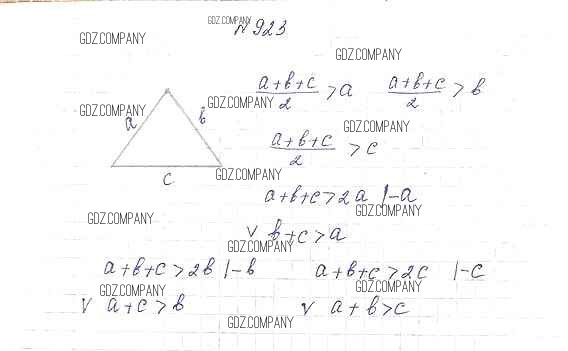 GDZ.COMPANY
№ 923
GDZ.COMPANY
GDZ.COMPANY
(a+b+c)/2 > a (a+b+c)/2 > b
GDZ.COMPANY
GDZ.COMPANY
a
b
GDZ.COMPANY
(a+b+c)/2 > c
c
GDZ.COMPANY
a+b+c>2a |-a
GDZ.COMPANY
GDZ.COMPANY
v b+c>a
GDZ.COMPANY
a+b+c>2b |-b a+b+c>2c |-c
GDZ.COMPANY
GDZ.COMPANY
v a+c>b v a+b>c
GDZ.COMPANY